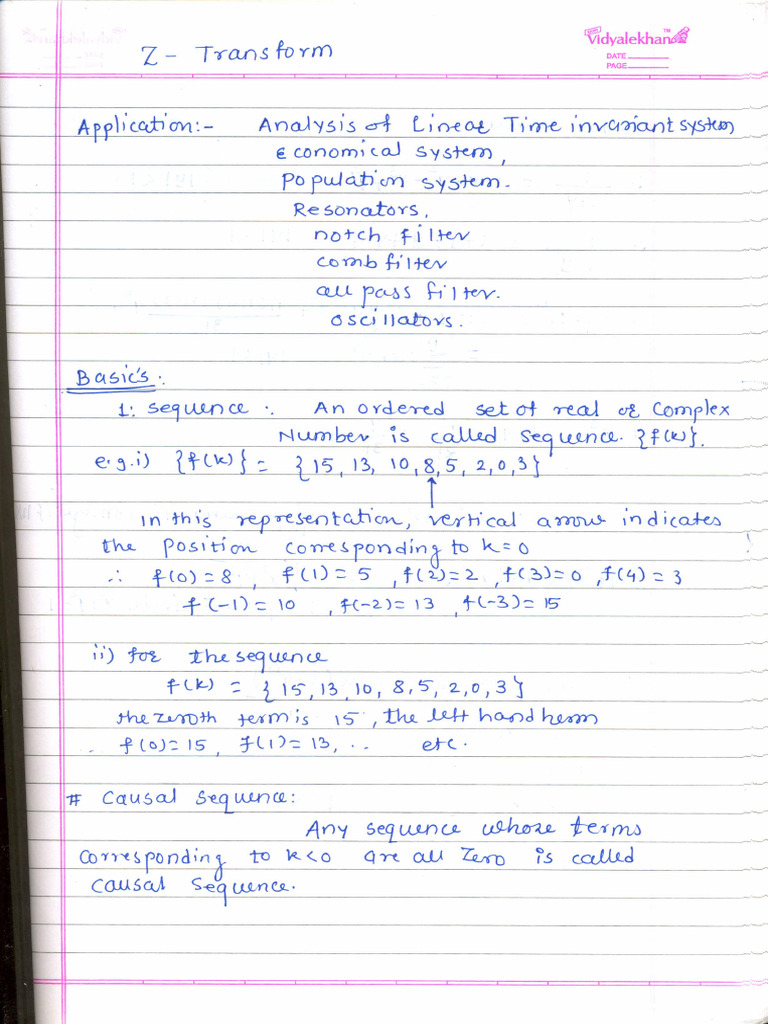 Z - Transform
Vidyalekhan™
DATE
PAGE
Application:- Analysis of Linear Time invariant system
Economical system,
Population system.
Resonators,
notch filter
comb filter
all pass filter.
oscillators.
Basic's:
1: sequence :. An ordered set of real or complex
Number is called sequence. {f(k)}.
e.g.i) {f(k)} = {15, 13, 10, 8, 5, 2, 0, 3}
↑
in this representation, vertical arrow indicates
the position corresponding to k=0
∴ f(0)=8, f(1)=5, f(2)=2, f(3)=0, f(4)=3
f(-1)=10, f(-2)=13, f(-3)=15
ii) for the sequence
f(k) = {15, 13, 10, 8, 5, 2, 0, 3}
the zeroth term is 15, the left hand herm
f(0)=15, f(1)=13, .. etc.
# Causal sequence:
Any sequence whose terms
corresponding to k<0 are all Zero is called
causal sequence.